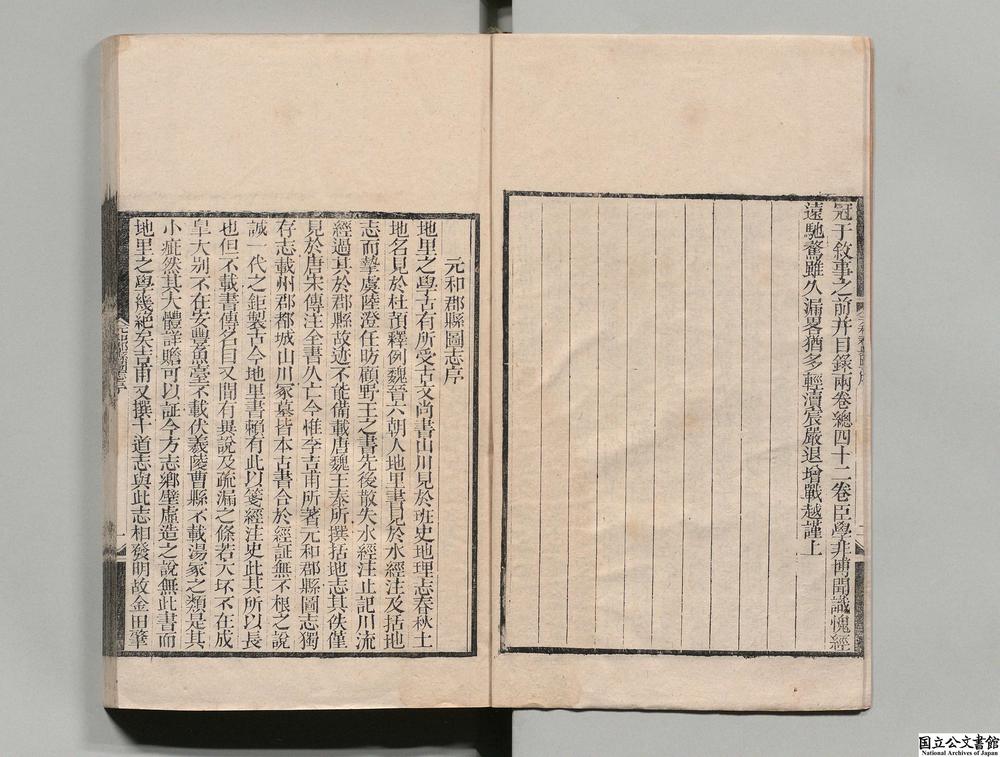 冠于敘事之前并目錄兩卷總四十二卷臣學非博聞識愧經
遠馳騖雖久漏畧猶多輕瀆宸嚴退增戰越謹上
二
元和郡縣圖志序
地里之學古有所受古文尚書山川見於班史地理志春秋土
地名見於杜預釋例魏晉六朝人地里書見於水經注及括地
志而摯虞陸澄任昉顧野王之書先後散失水經注止記川流
經過其於郡縣故迹不能備載唐魏王泰所撰括地志其佚僅
見於唐宋傳注全書久亡今惟李吉甫所著元和郡縣圖志獨
存志載州郡都城山川冢墓皆本古書合於經証無不根之說
誠一代之鉅製古今地里書賴有此以箋經注史此其所以長
也但不載書傳名目又間有異說及疏漏之條若大坯不在成
皐大别不在安豐魚臺不載伏羲陵曹縣不載湯冢之類是其
小疵然其大體詳贍可以証今方志鄉壁虛造之說無此書而
地里之學幾絕矣吉甫又撰十道志與此志相發明故金田肇
一
国立公文書館
National Archives of Japan